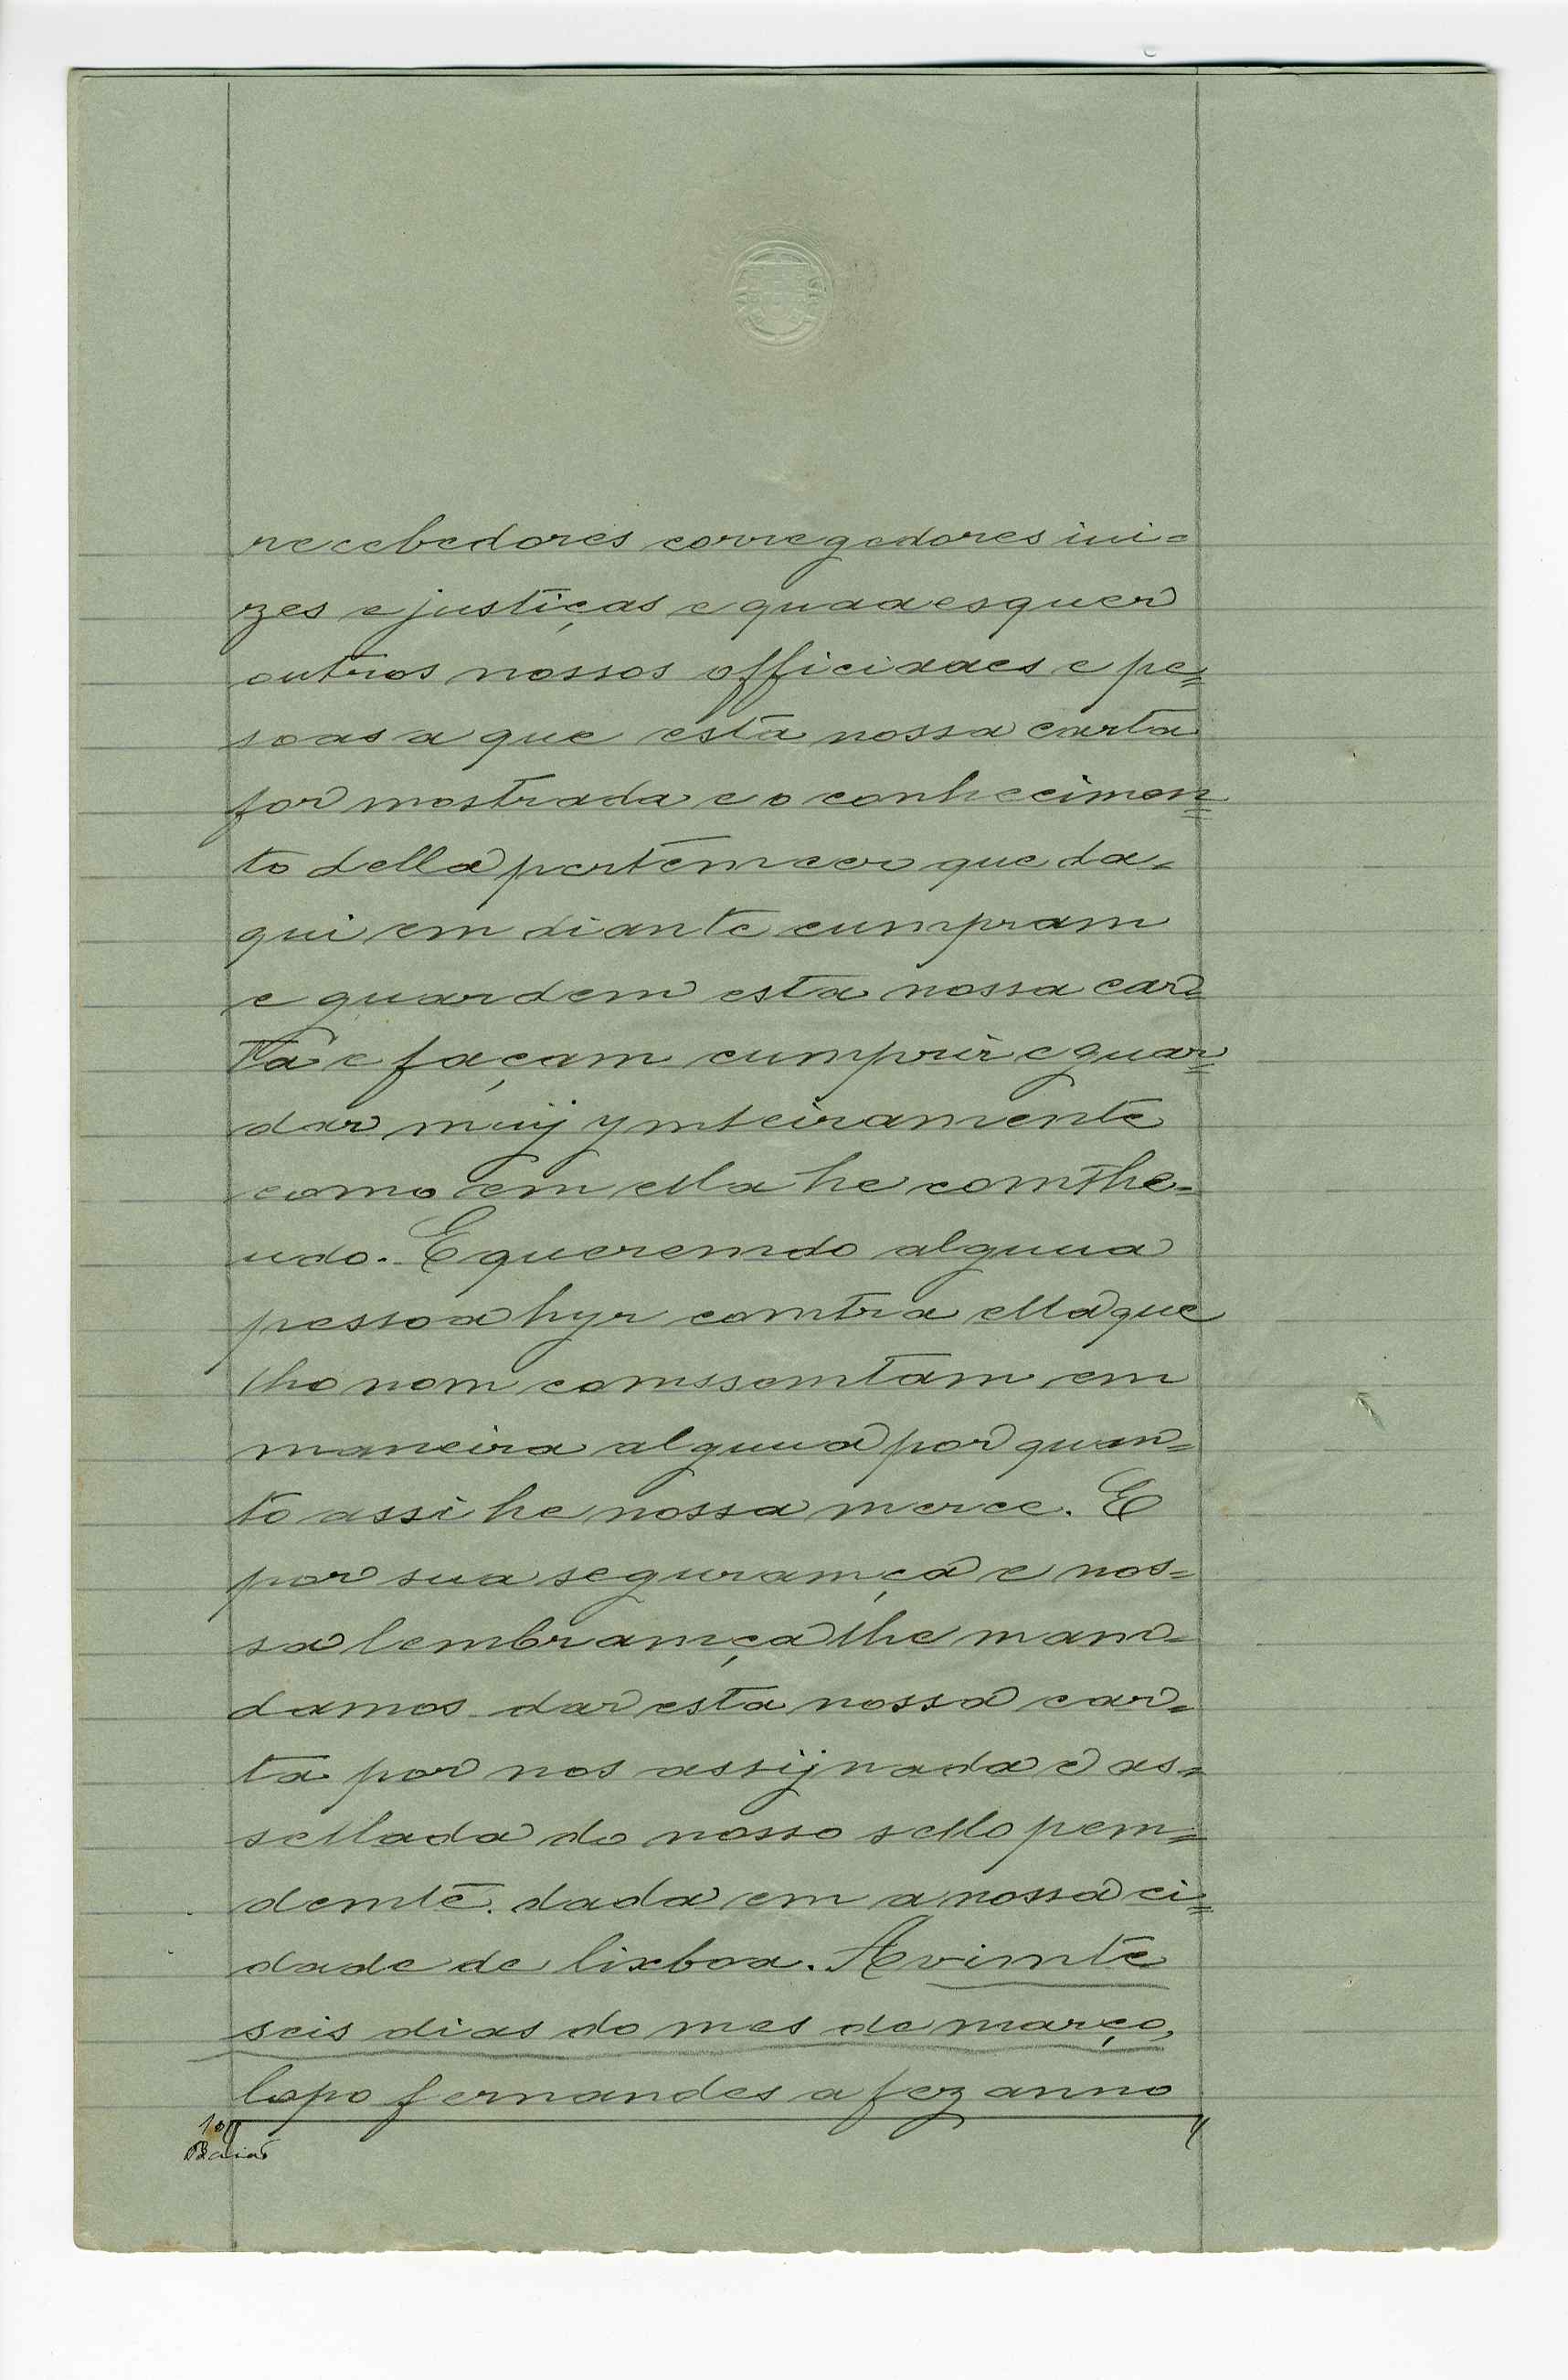 recebedores corregedores iui=
zes e justiças e quaaesquer
outros nossos officiaaes e pe=
soas a que esta nossa carta
for mostrada e o conhecimen=
to della pertemcer que da=
qui em diante cumpram
e guardem esta nossa car=
ta e façam cumprir e guar=
dar muij ymteiramente
como em ella he comthe=
udo. E queremdo alguua
pessoa hyr comtra ella que
lho nom comssemtam em
maneira alguua por quan=
to assi he nossa merce. E
por sua seguramça e nos=
sa lembramça lhe mam=
damos dar esta nossa car=
ta por nos assijnada e as=
sellada do nosso sello pem=
demte. dada em a nossa ci=
dade de lixboa. A vimte
seis dias do mes de março,
lopo fernandes a fez anno
Baião